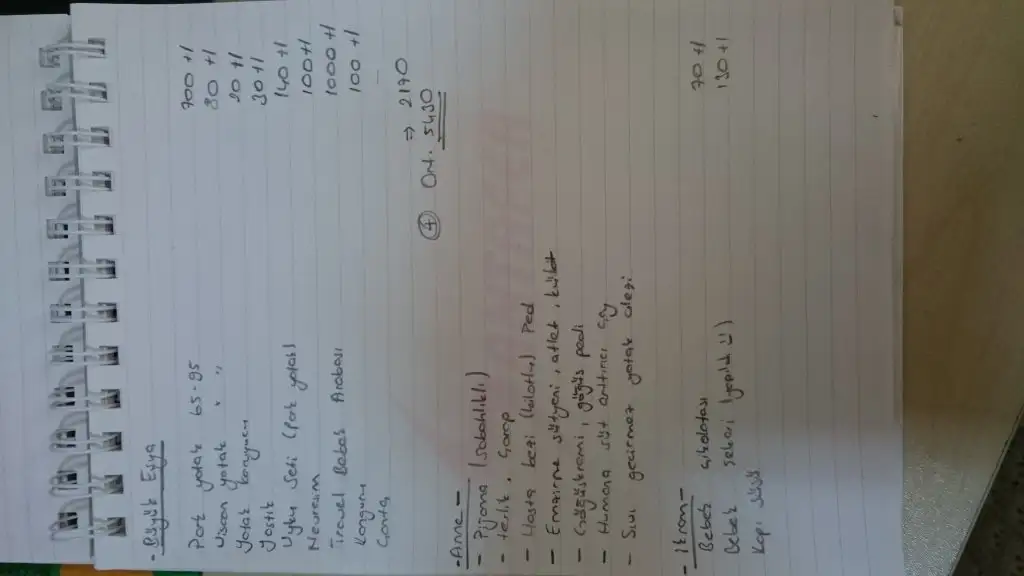 - Büyük Eşya
Park yatak 65.95 700 +l
Viscon yatak " " 80 +l
Yatak koruyucu 20 +l
Yastık 30 +l
Uyku Seti (park yatak) 140 +l
Nevresim 100 +l
Travel Bebek Arabası 1000 +l
Kanguru 100 +l
Çanta —
⇒ 2170
④ Ort. 5430
- Anne -
- Pijama (sabahlıklı)
- terlik. Çorap
- Hasta bezi (külotlu) Ped
- Emzirme sütyeni, atlet, külot
- Göğüskremi, göğüs pedi
- Humana süt arttırıcı çay
- Sıvı geçirmez yatak alezi
- İkram -
Bebek çikolatası 70 +l
Bebek şekeri (yapıldı :)) 130 +l
Kapı süsü